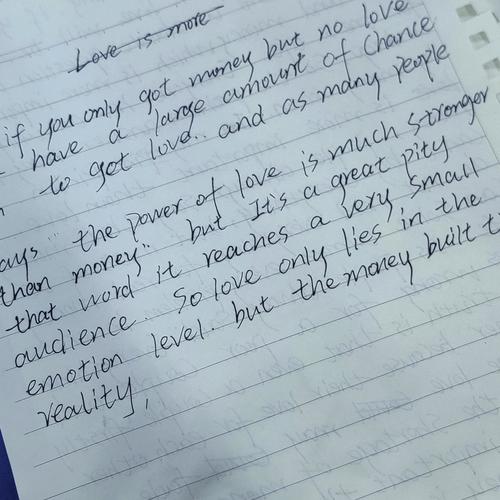 Love is more
if you only got money but no love
have a large amount of chance
to get love.. and as many people
ays "the power of love is much stronger
than money".. but It's a great pity
that word it reaches a very small
audience.. So love only lies in the
emotion level. but the money built t
reality,